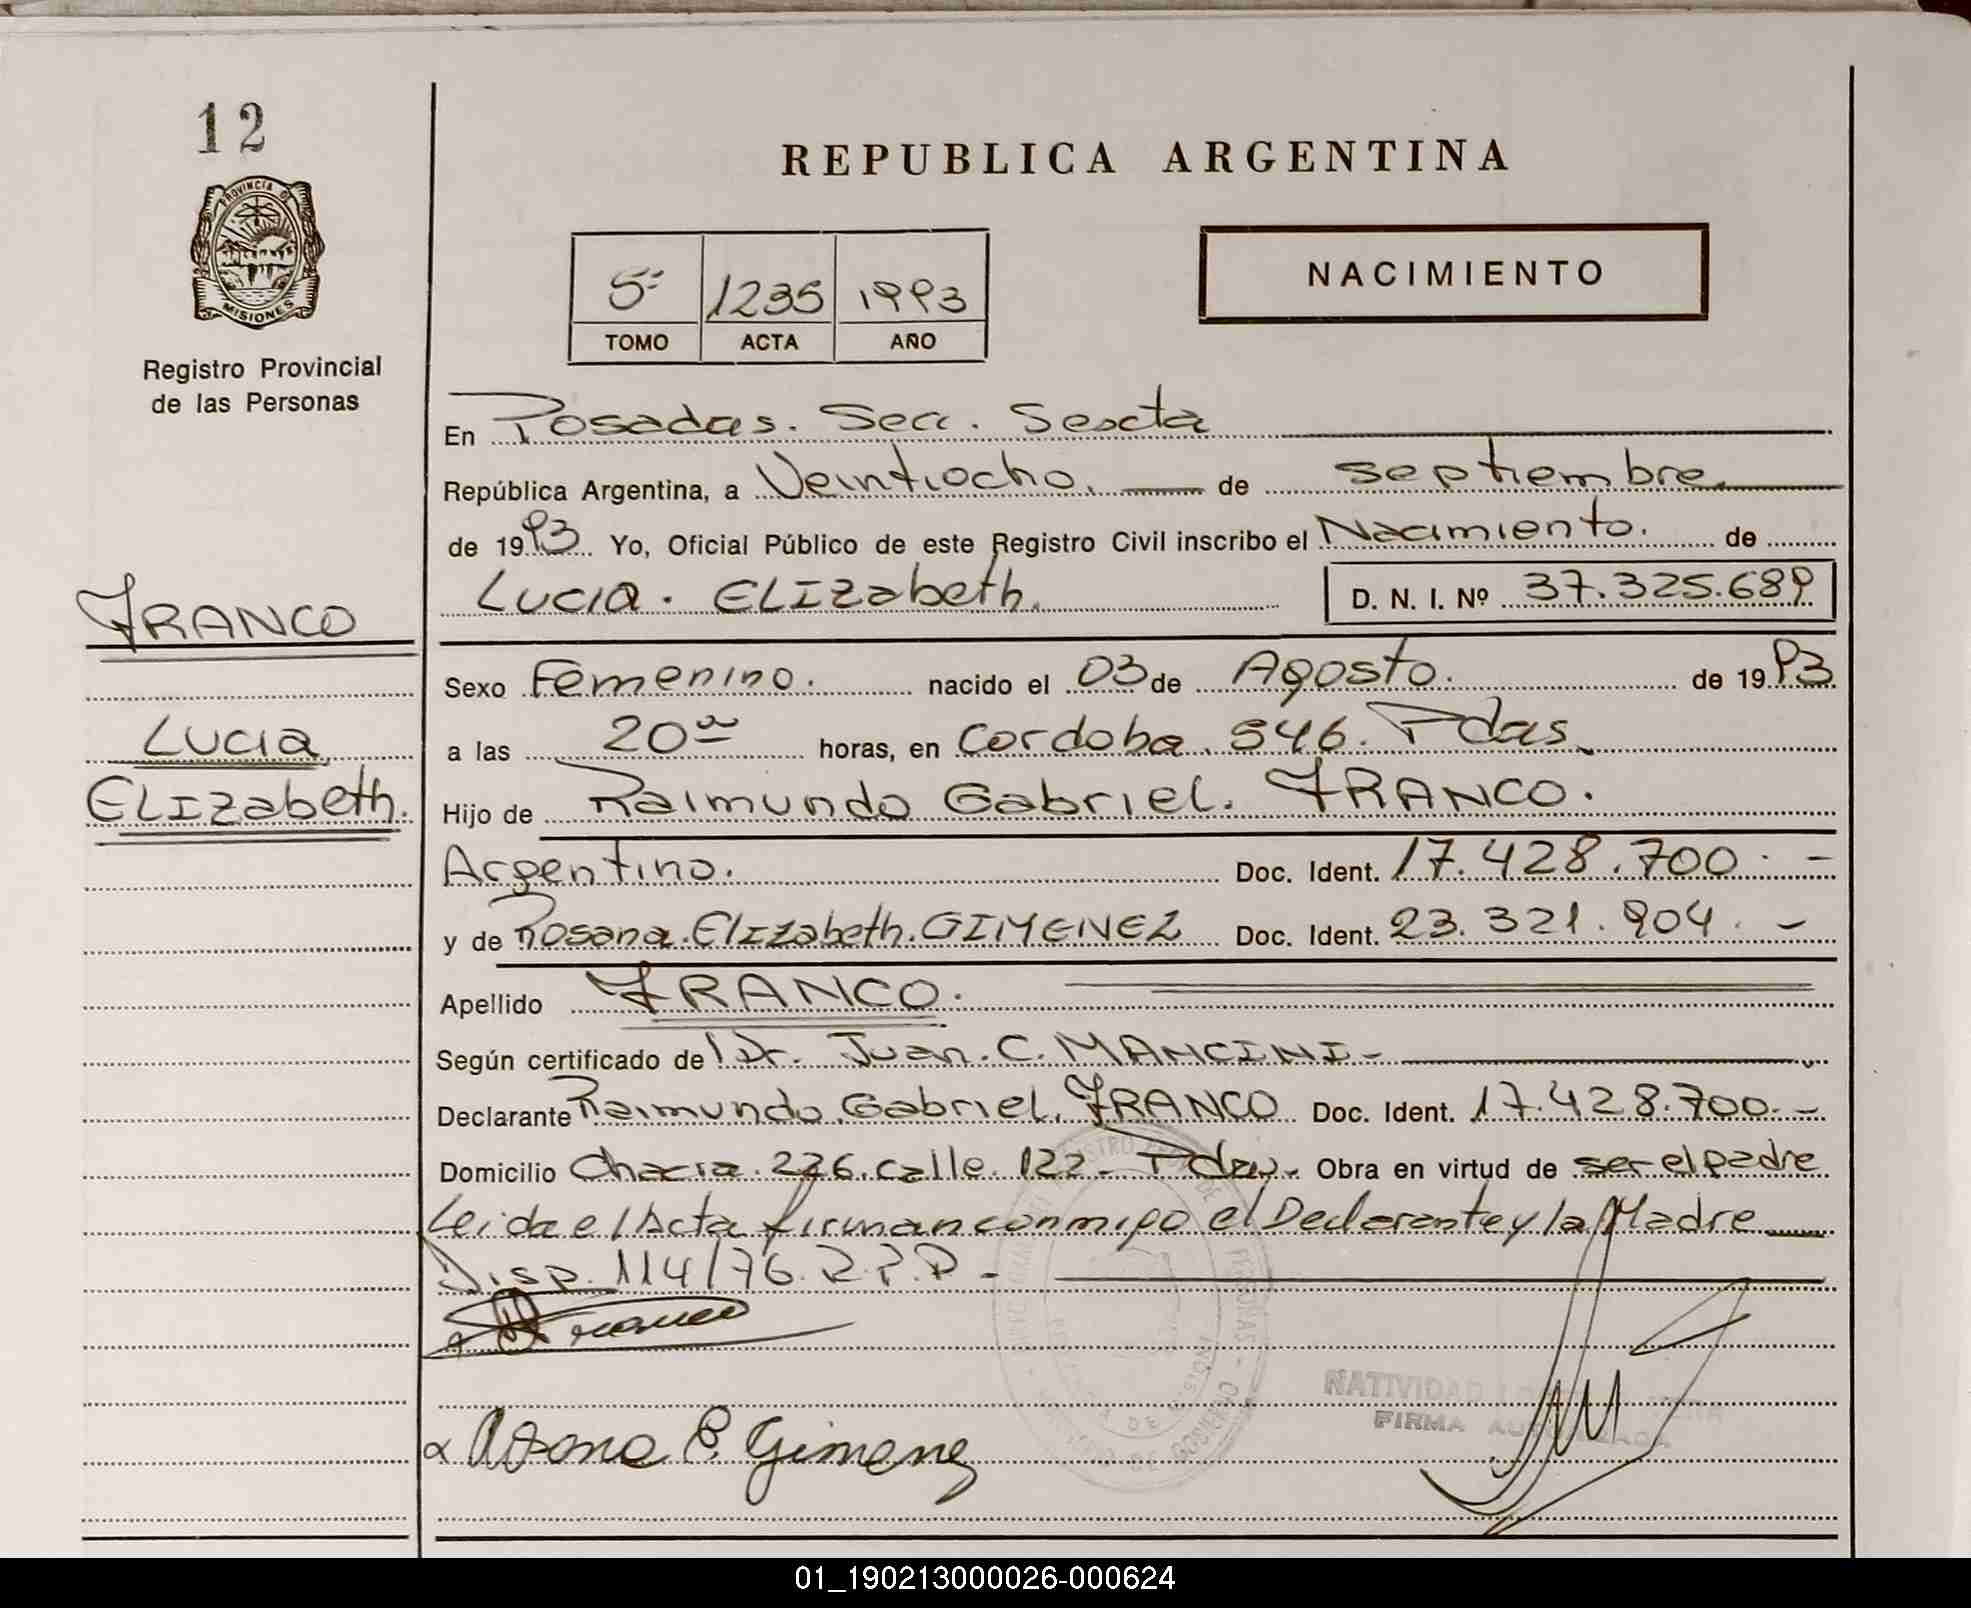 12
PROVINCIA DE
MISIONES
Registro Provincial
de las Personas
FRANCO
Lucia
Elizabeth.
REPUBLICA ARGENTINA
5º 1235 1993
TOMO ACTA AÑO
NACIMIENTO
En Posadas. Secc. Sexta
República Argentina, a Veintiocho. de septiembre.
de 1993 Yo, Oficial Público de este Registro Civil inscribo el Nacimiento. de
Lucia. Elizabeth. D. N. I. Nº 37.325.689
Sexo Femenino. nacido el 03 de Agosto. de 1993
a las 20 horas, en Cordoba. 546. Pdas.
Hijo de Raimundo Gabriel. FRANCO.
Argentino. Doc. Ident. 17.428.700.-
y de Rosana. Elizabeth. GIMENEZ Doc. Ident. 23.321.904.-
Apellido FRANCO.
Según certificado de Dr. Juan. C. MANCINI-
Declarante Raimundo. Gabriel. FRANCO Doc. Ident. 17.428.700.-
Domicilio Chacra. 226. calle. 122- Pdas. Obra en virtud de ser el padre
Leida el Acta firman conmigo el Declarante y la Madre
Disp. 114/76. R.P.P-
Franco
Rosana E. Gimenez
NATIVIDAD
FIRMA AUTORIZADA
01_190213000026-000624